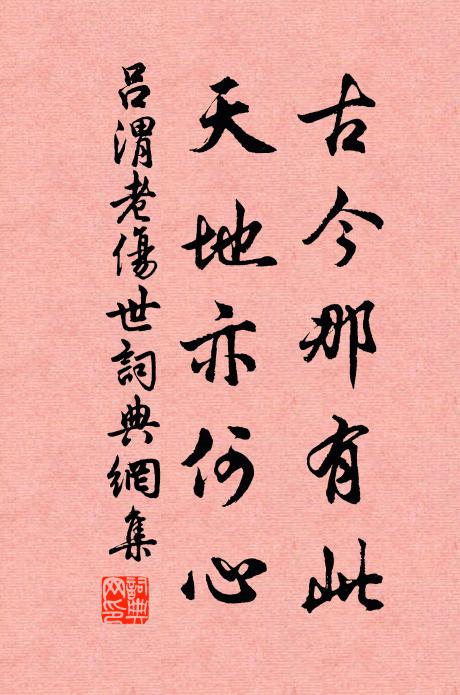 古今那有此
天地亦何心
吕渭老傷世詞典網集
詞典網印